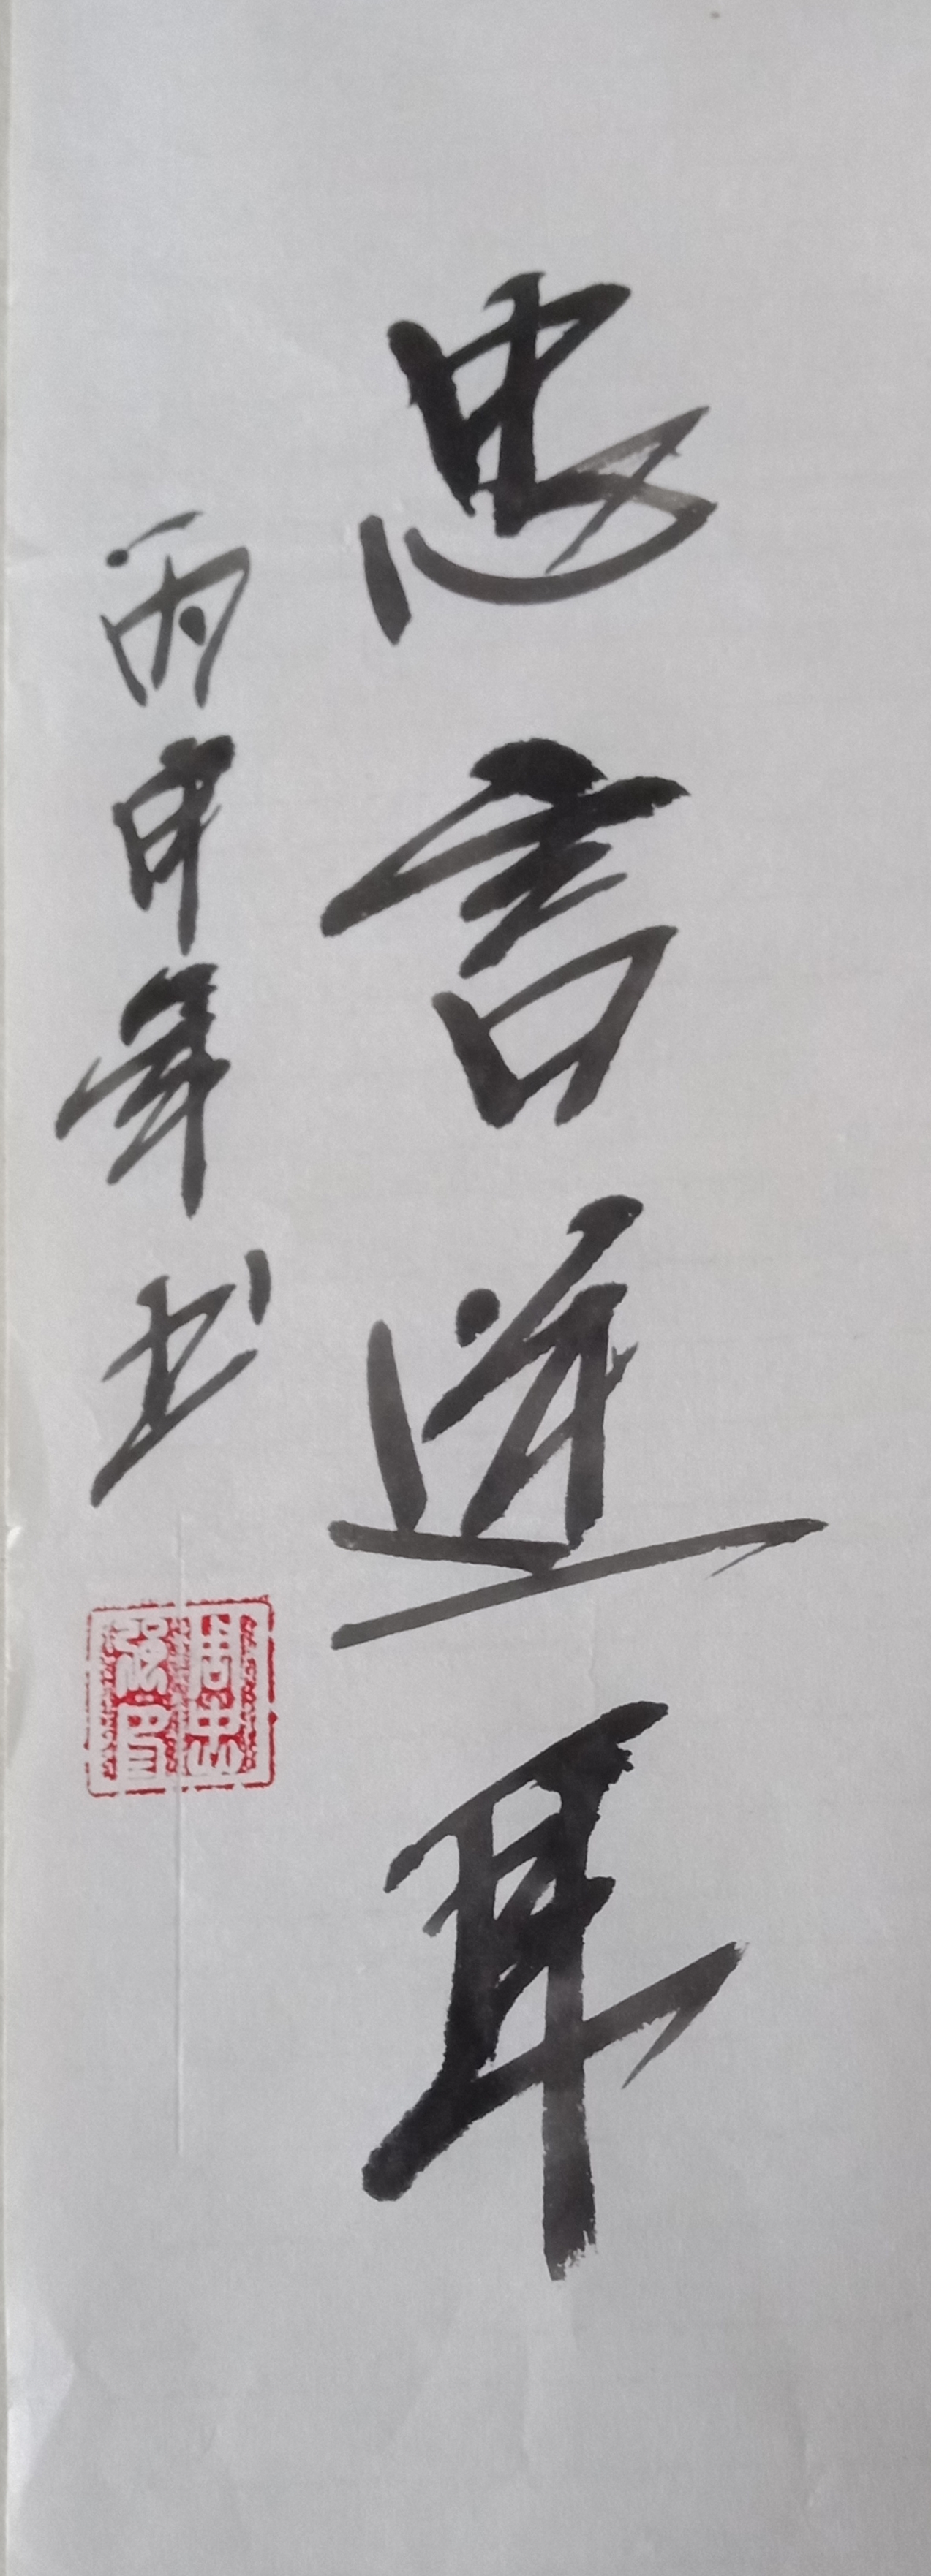 忠言逆耳
丙申年书